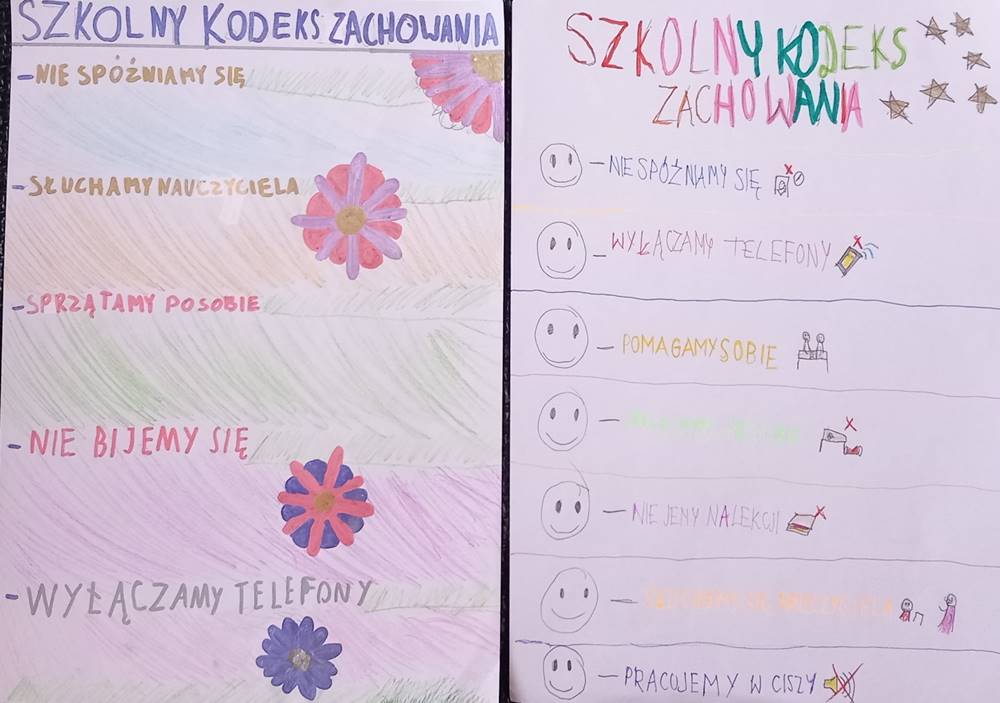 SZKOLNY KODEKS ZACHOWANIA
-NIE SPÓŹNIAMY SIĘ
-SŁUCHAMY NAUCZYCIELA
-SPRZĄTAMY PO SOBIE
-NIE BIJEMY SIĘ
-WYŁĄCZAMY TELEFONY
SZKOLNY KODEKS
ZACHOWANIA
-NIE SPÓŹNAMY SIĘ
-WYŁĄCZAMY TELEFONY
-POMAGAMY SOBIE
-NIE JEMY NA LEKCJI
-PRACUJEMY W CISZY